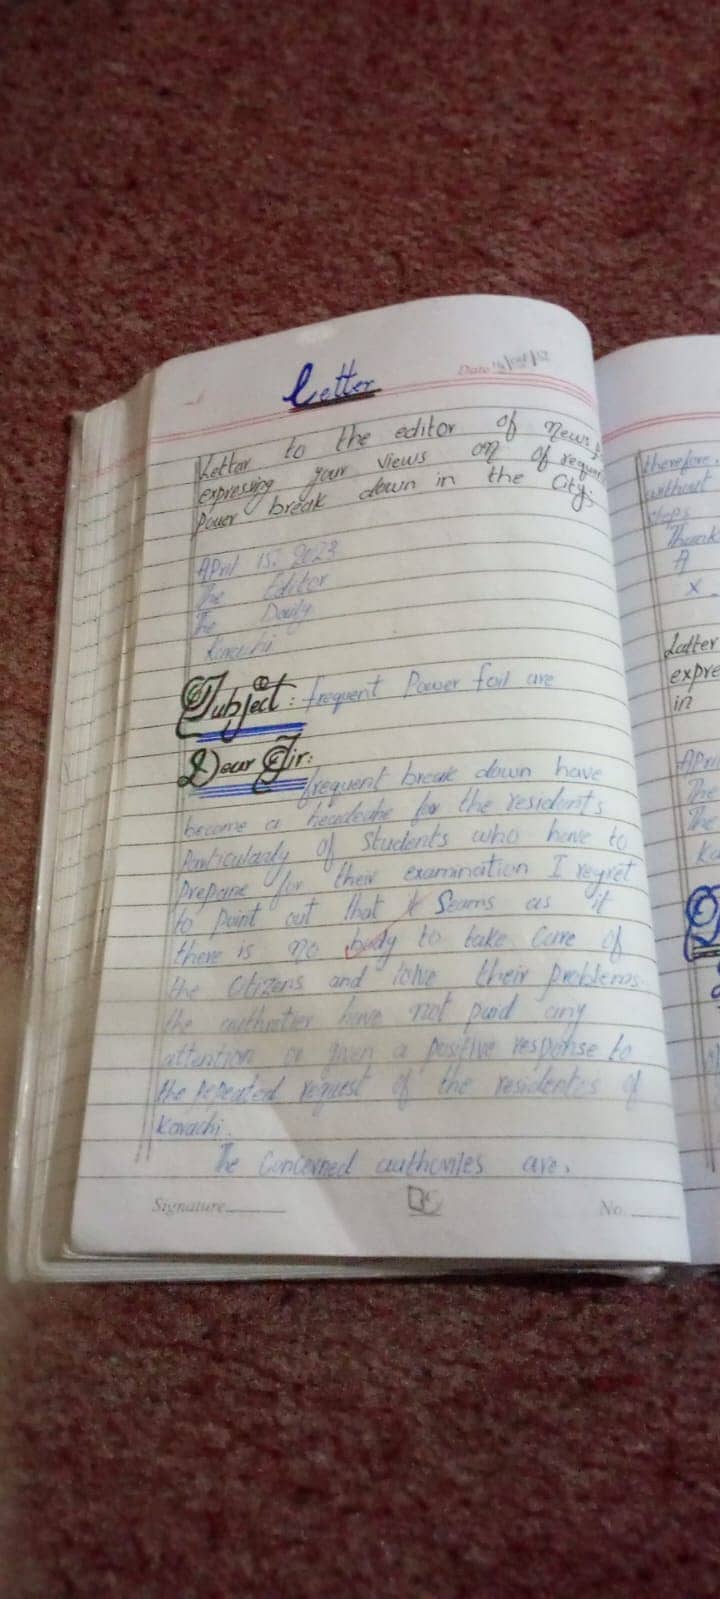 Letter
Date
Letter to the editor of news
expressing your views on of reque
Power break down in the City:
April 15, 2023
The Editor
The Dauly
Karachi
Subject: frequent Power fail are
Dear Sir:
frequent break down have
become a headache for the residents
Particularly of students who have to
prepare for their examination I regret
to point out that it Seams as it
there is no body to take care of
the citizens and solve their problems
the authroties have not paid any
attention or given a positive response to
the repeated request of the residentes of
Karachi.
The Concerned authorites are.
Signature
No.
therefore.
without
Thank
A
x
Letter
expre
in
April
The
The
Ka